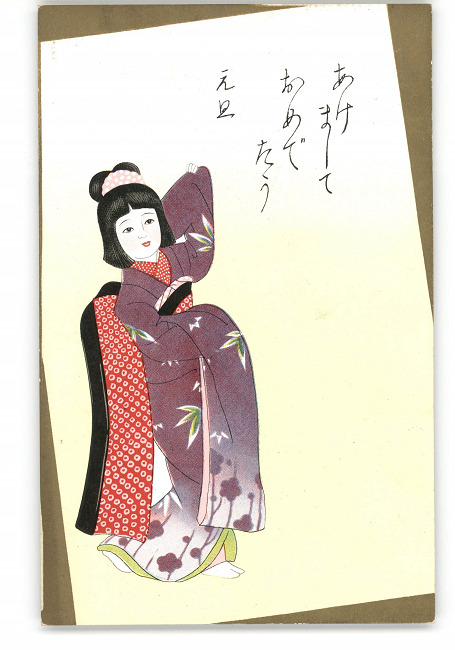 あけ
まして
おめで
たう
元旦